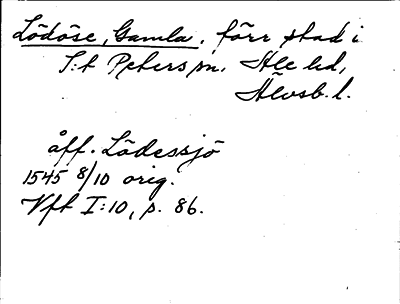 Lödöse, Gamla, förr stad i
S:t Peters sn. Ale hd,
Älvsb. l.
åff. Lödessjö
1545 8/10 orig.
Vft I:10, s. 86.